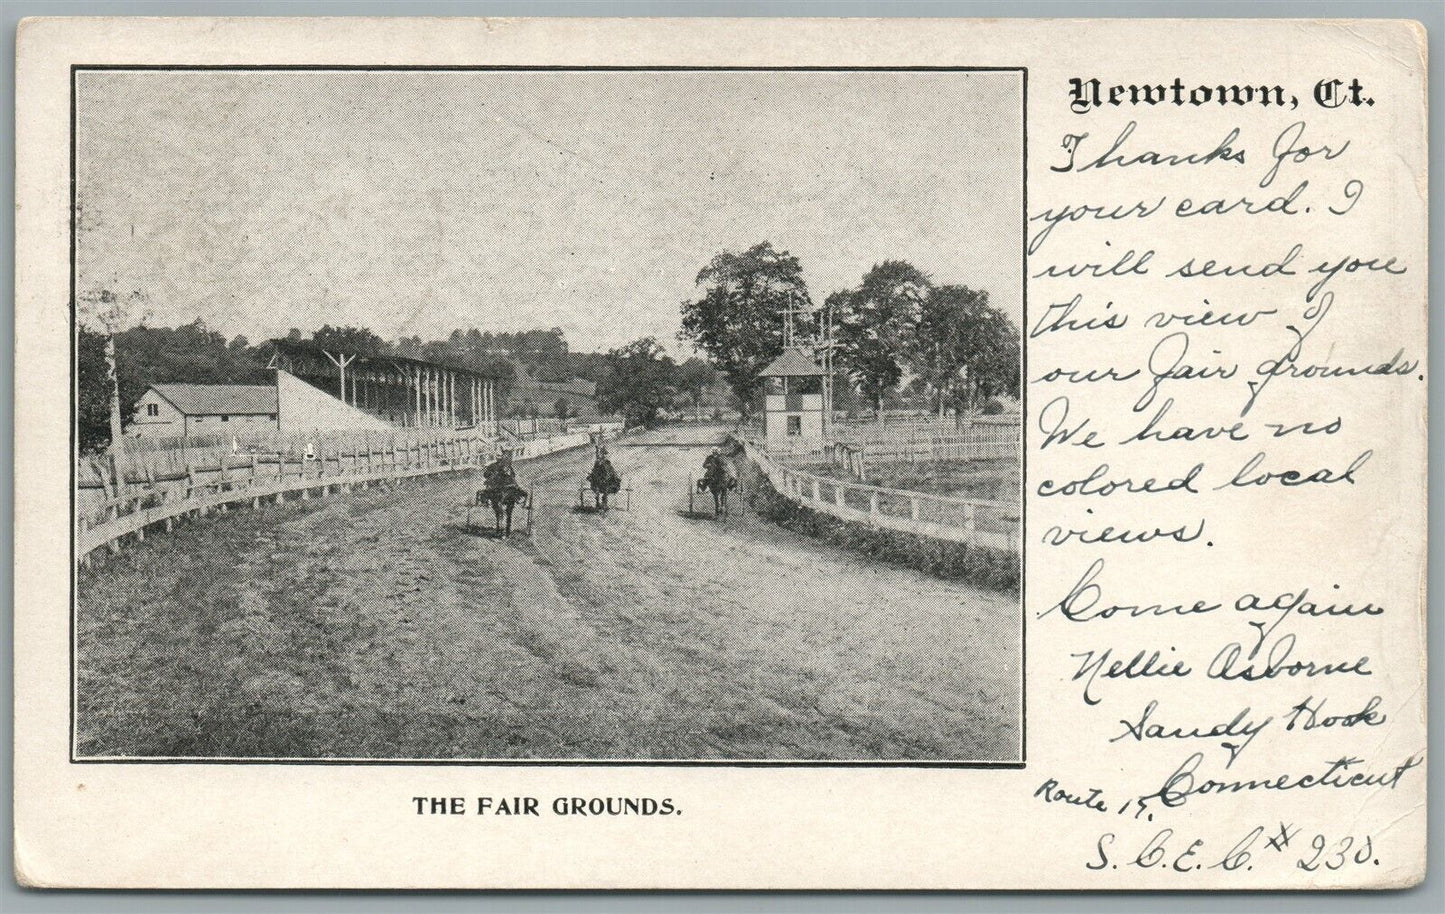 Newtown, Ct.
Thanks for
your card. I
will send you
this view of
our fair grounds.
We have no
colored local
views.
Come again
Nellie Osborne
Sandy Hook
Connecticut
Route
S.C.E.C. # 230.
THE FAIR GROUNDS.